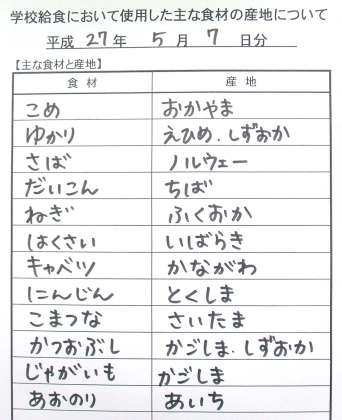 学校給食において使用した主な食材の産地について
平成 27 年 5 月 7 日分
【主な食材と産地】
食材 産地
こめ おかやま
ゆかり えひめ.しずおか
さば ノルウェー
だいこん ちば
ねぎ ふくおか
はくさい いばらき
キャベツ かながわ
にんじん とくしま
こまつな さいたま
かつおぶし かごしま.しずおか
じゃがいも かごしま
あおのり あいち